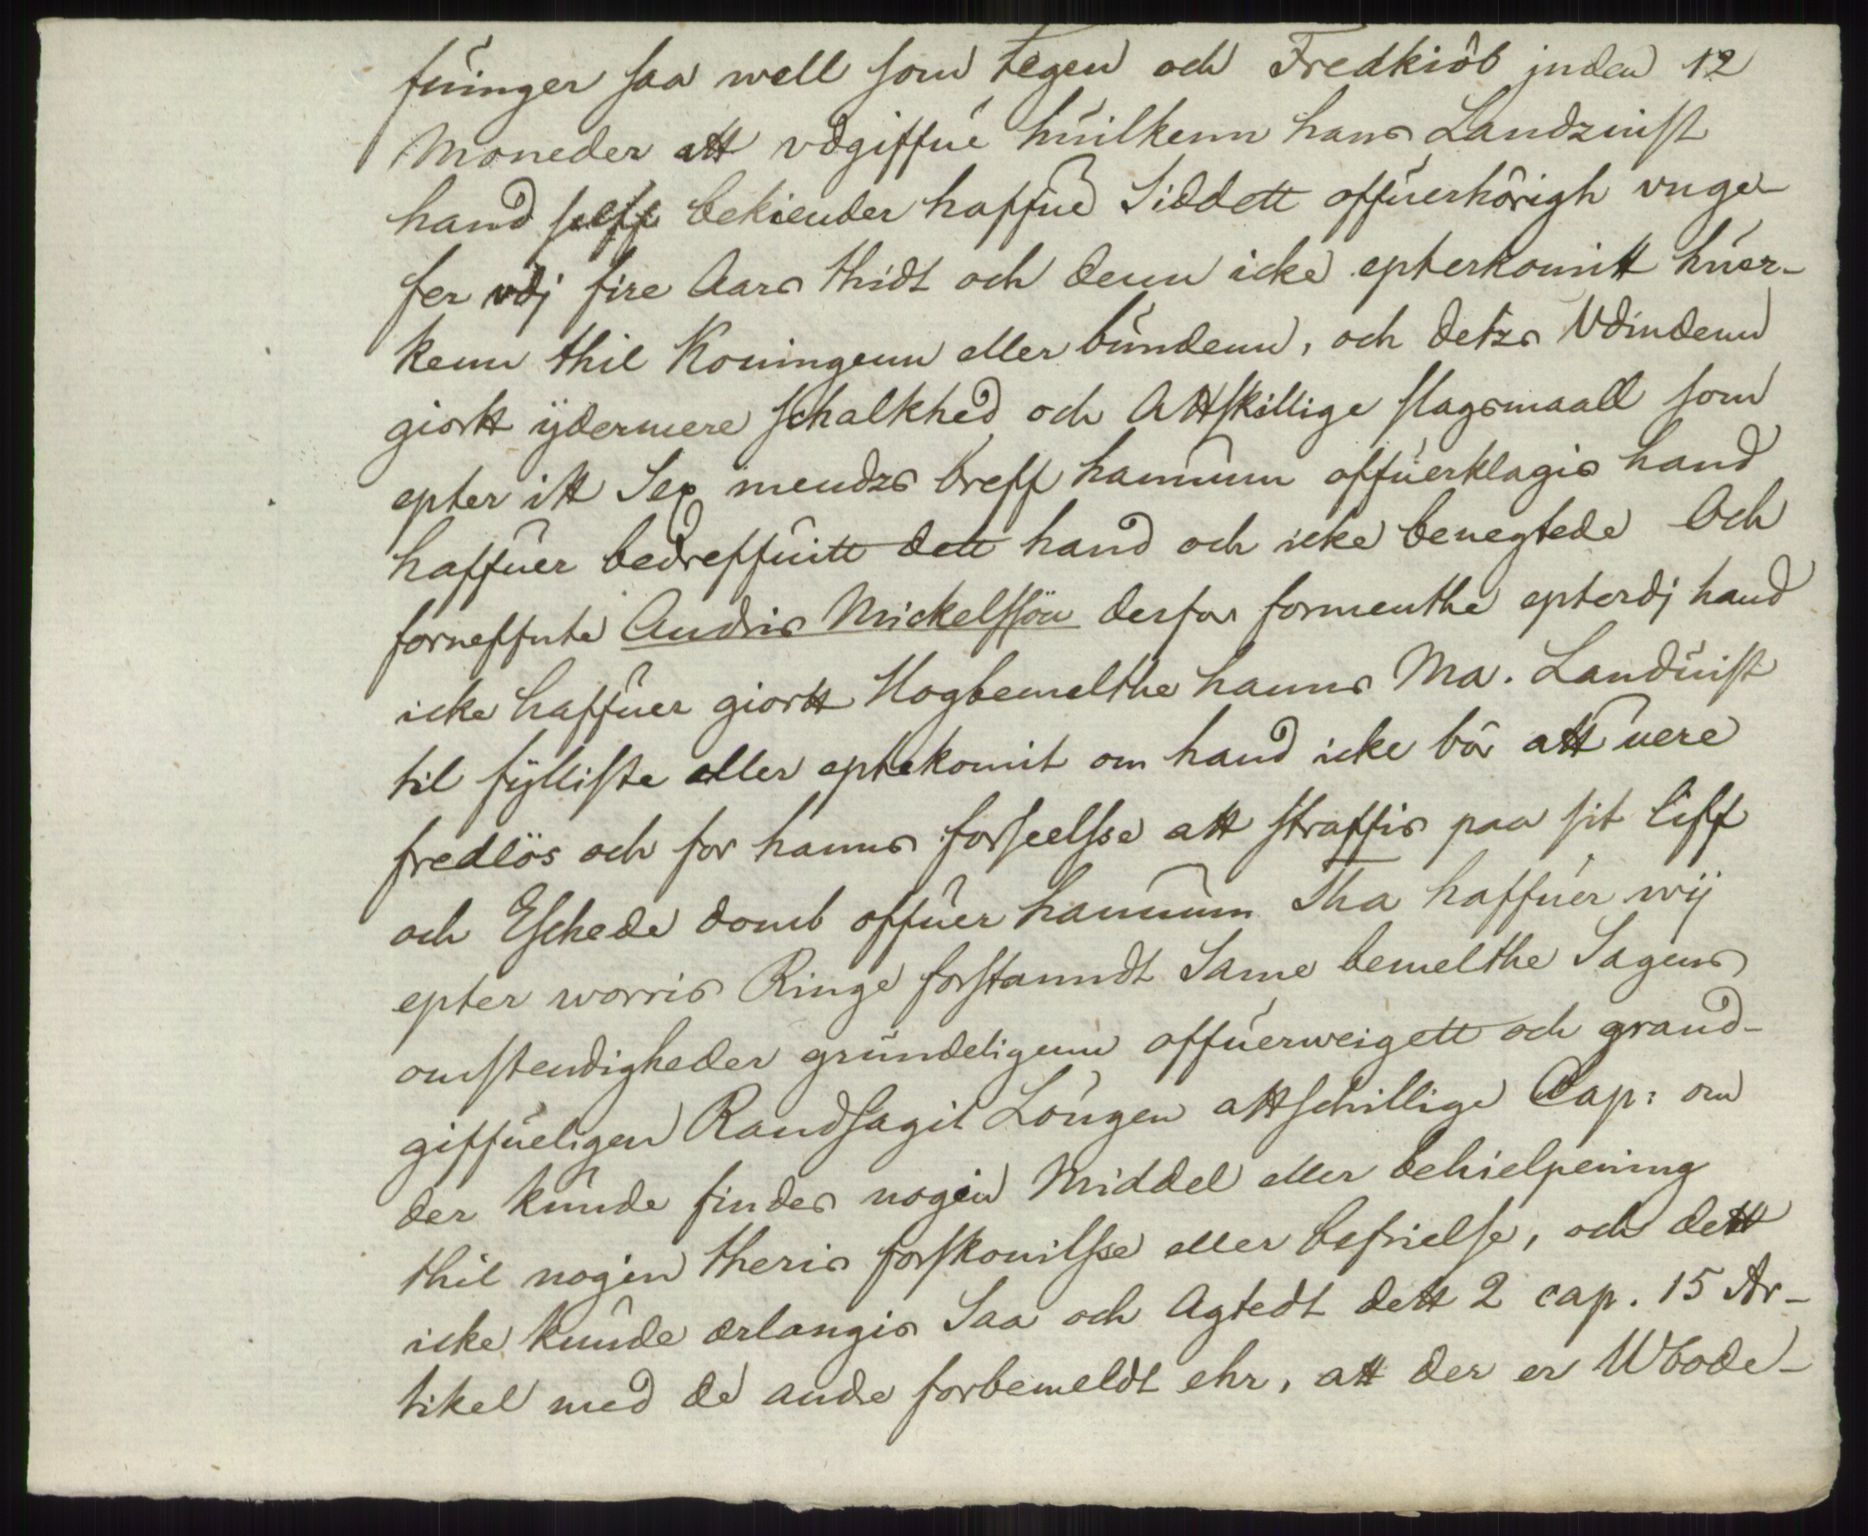 fuinger saa well som Tegen och Fredkiöb jnden 12
Moneder att vdgiffue huilkenn hans Landzuist
hand selff bekiender haffue Siddett offuerhörigh vnge-
fer vdj fire Aars thidt och denn icke epterkomitt huer-
kenn thil Koningenn eller bundenn, och detzs Vdindenn
giortt ÿdermere schalkhed och Attskillige slagsmaall som
epter itt Sex mendzs breff hannum offuerklagis hand
haffuer bedreffuitt dett hand och icke benegtede Och
forneffnte Andris Mickelssön derfor formenthe epterdj hand
icke haffuer giortt Hogbemelthe hanns Ma. Landuist
til fÿlliste eller eptekomit om hand icke bör att uere
fredlös och for hanns forseelsse att straffis paa sit liff
och Eschede domb offuer hannum Tha haffuer wij
epter worris Ringe forstanndt Same bemelthe Sagens
omstendigheder grundeligenn offuerweigett och grand-
giffueligen Randsagit Lougen attschillige Cap: om
der kunde findes nogen Middel eller behielpening
thil nogen theris forskonilsse eller befrielse, och dett
icke kunde erlangis Saa och Agtedt dett 2 cap. 15 Ar-
tikel med de andre forbemeldt ehr, att der er Wbode-